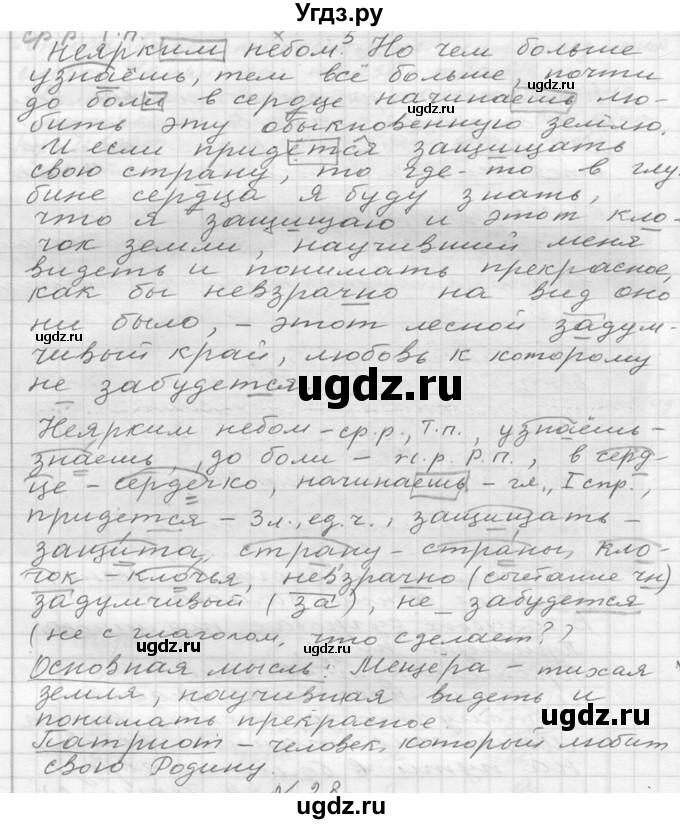 Угdз.ру
ср.р. Т.п.
неярким небом.⁵ Но чем больше
узнаёшь, тем всё больше, почти
до боли в сердце начинаешь лю-
бить эту обыкновенную землю.
И если придется защищать
свою страну, то где-то в глу-
бине сердца я буду знать,
что я защищаю и этот кло-
чок земли, научивший меня
видеть и понимать прекрасное,
как бы невзрачно на вид оно
ни было, - этот лесной задум-
чивый край, любовь к которому
не забудется
Неярким небом - ср.р., Т.п., узнаёшь -
знаешь, до боли - ж.р. Р.п., в серд-
це - сердечко, начинаешь - гл., I спр.,
придется - 3л., ед.ч., защищать -
защита, страну - страны, кло-
чок - клочья, невзрачно (сочетание чн)
задумчивый (за), не забудется
(не с глаголом, что сделает?)
Основная мысль: Мещёра - тихая
земля, научившая видеть и
понимать прекрасное
Патриот - человек, который любит
свою Родину.
№ 28
ugdz.ru
ugdz.ru
ugdz.ru
ugdz.ru
ugdz.ru
ugdz.ru
ugdz.ru
ugdz.ru
ugdz.ru
ugdz.ru